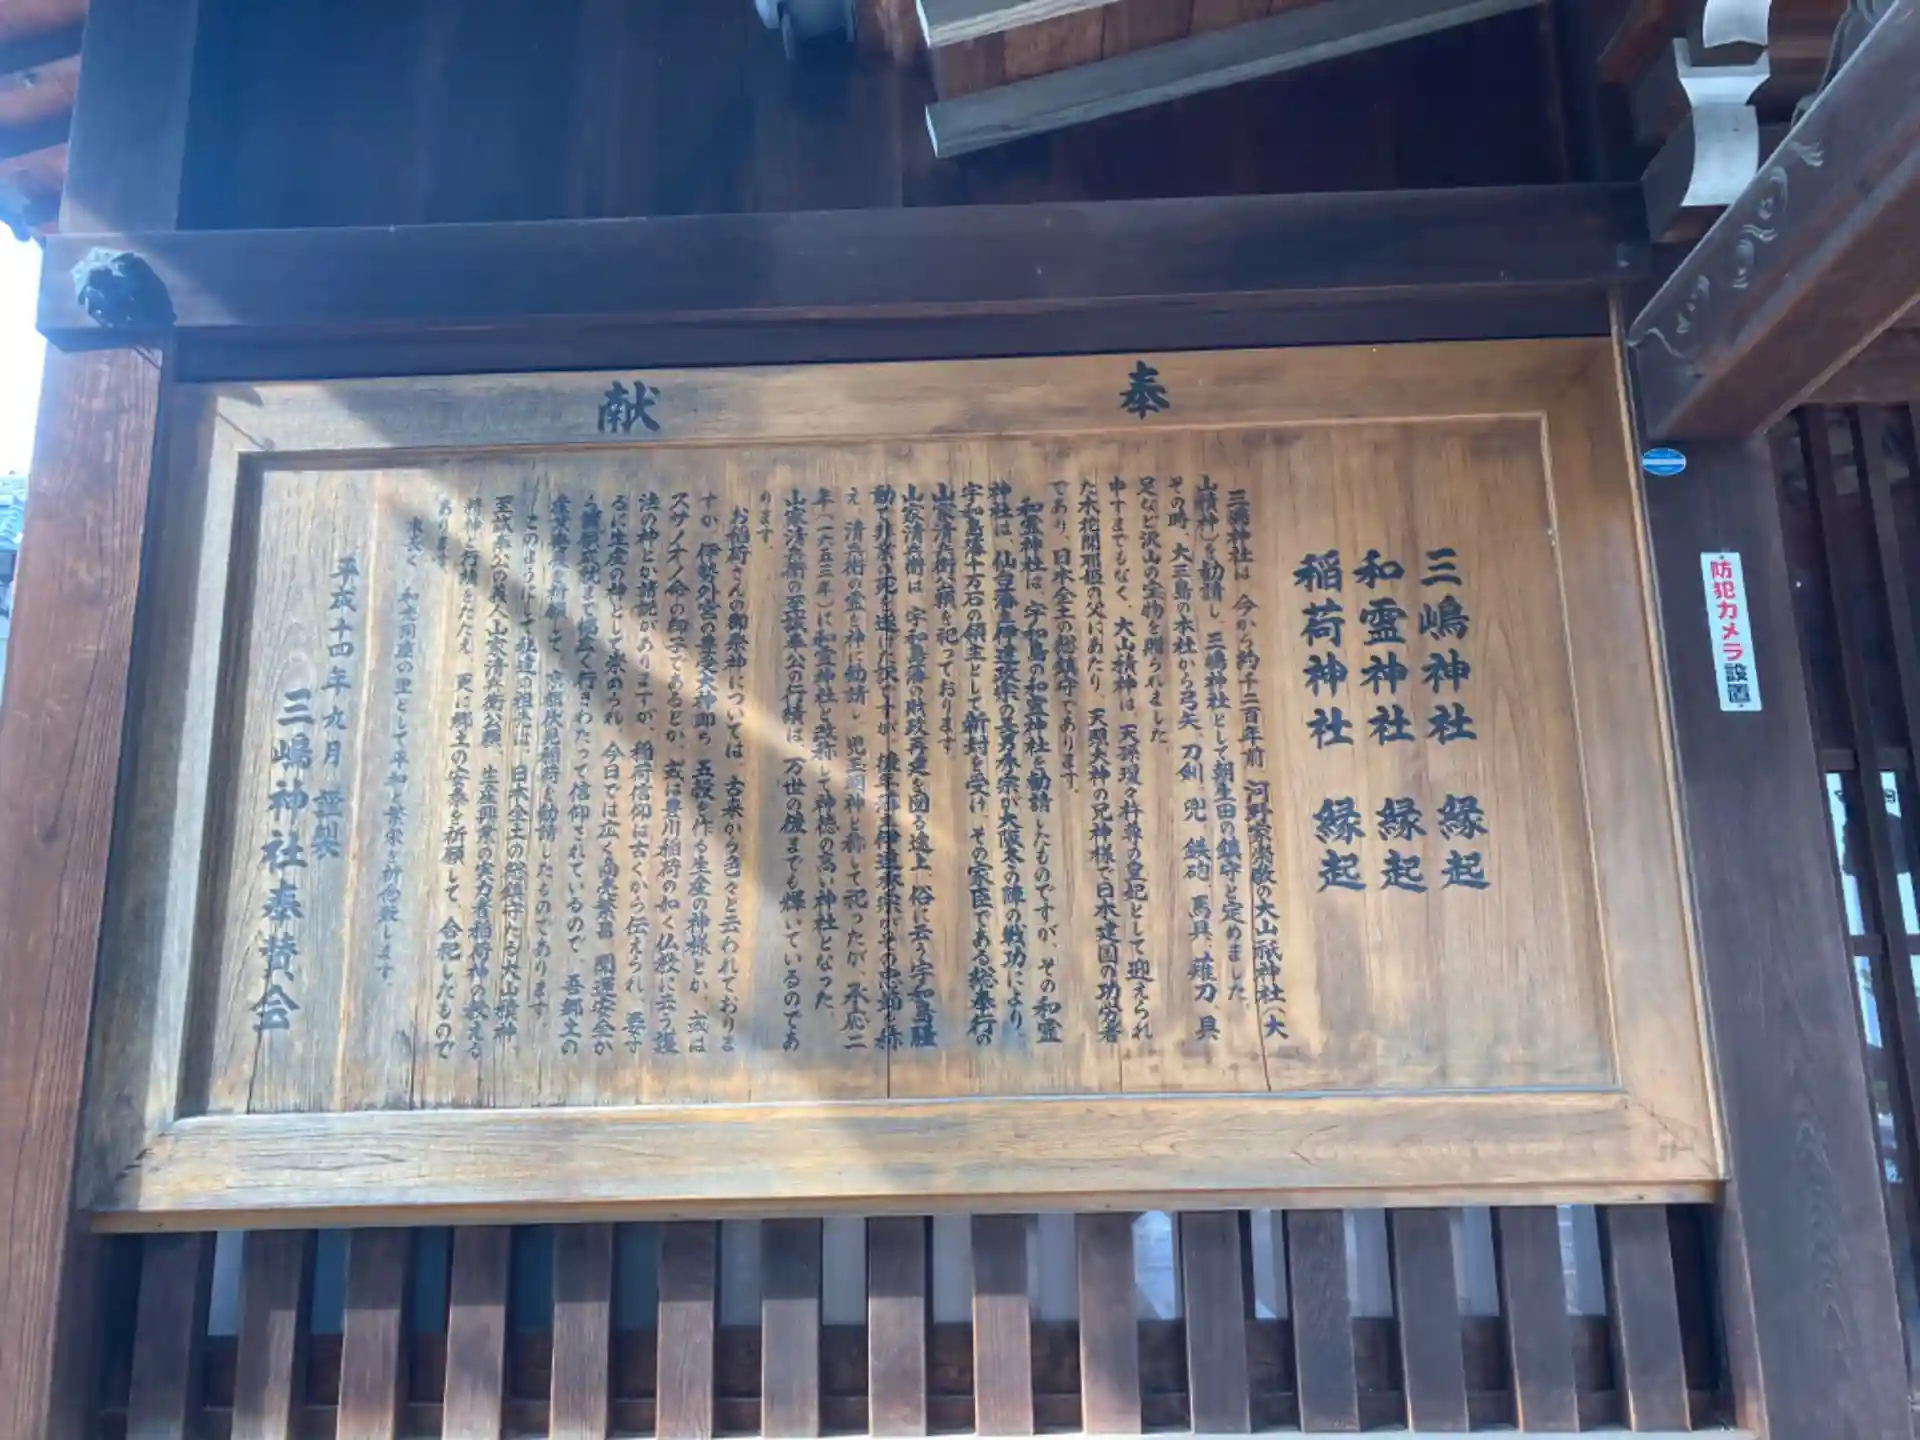 奉献
三嶋神社 縁起
和霊神社 縁起
稲荷神社 縁起
三嶋神社は、今から約千二百年前 河野家崇敬の大山祇神社(大
山積神)を勧請し、三嶋神社として朝生田の鎮守と定めました。
その時、大三島の本社から弓矢、刀剣、兜、鉄砲、馬具、薙刀、具
足など沢山の宝物を賜られました。
申すまでもなく、大山積神は、天孫瓊々杵尊の皇妃として迎えられ
た木花開耶姫の父にあたり、天照大神の兄神様で日本建国の功労者
であり、日本全土の総鎮守であります。
和霊神社は、宇和島の和霊神社を勧請したものですが、その和霊
神社は、仙台藩主伊達政宗の長男秀宗が大阪冬の陣の戦功により、
宇和島藩十万石の領主として新封を受け、その家臣である総奉行の
山家清兵衛公頼を祀っております。
山家清兵衛は、宇和島藩の財政再建を図る途上、俗に云う宇和島騒
動で非業の死を遂げた訳ですが、後年藩主伊達秀宗がその忠節を称
え、清兵衛の霊を神に勧請し、児玉明神と称して祀ったが、承応二
年(一六五三年)に和霊神社と改称して神徳の高い神社となった。
山家清兵衛の至誠奉公の行績は、万世の後までも輝いているのであ
ります。
お稲荷さんの御祭神については、古来から色々と云われておりま
すが、伊勢外宮の豊受大神即ち、五穀を作る生産の神様とか、或は
スサノオノ命の御子であるとか、或は豊川稲荷の如く仏教に云う護
法の神とか諸説がありますが、稲荷信仰は古くから伝えられ、要す
るに生産の神として崇められ、今日では広く商売繁昌、開運安全か
ら諸願成就まで幅広く行きわたって信仰されているので、吾郷土の
産業発展を祈願して、京都伏見稲荷を勧請したものであります。
このようにして社達の祖先は、日本全土の総鎮守たる大山積神、
至誠奉公の義人山家清兵衛公頼、生産興業の実力者稲荷神の教える
精神と行績をたたえ、更に郷土の安泰を祈願して、合祀したもので
あります。
末長く、和霊同座の里として平和と繁栄を祈念致します。
平成十四年九月 謹製
三嶋神社奉賛会
防犯カメラ設置